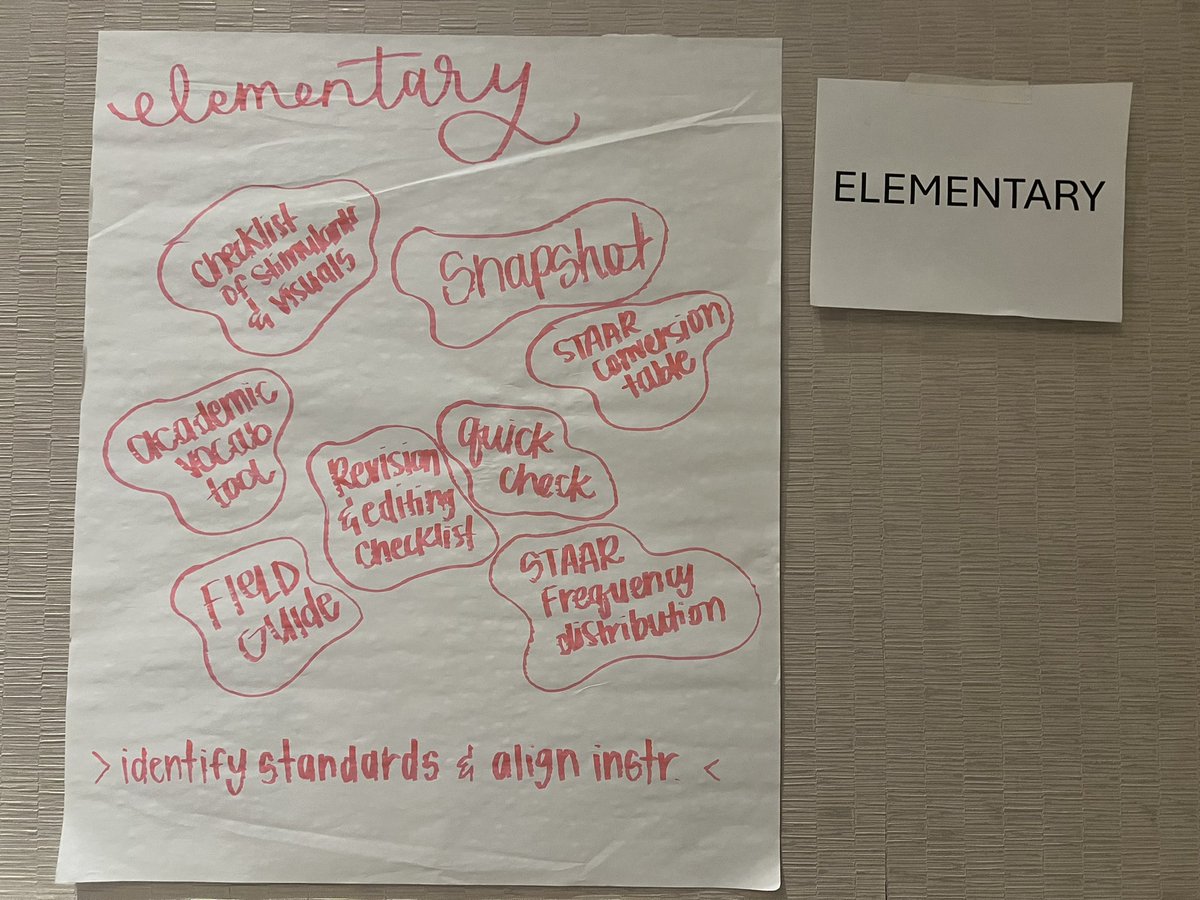 elementary
checklist
of stimulants
& visuals
snapshot
STAAR
conversion
table
academic
vocab
tool
Revision
& editing
checklist
quick
check
FIELD
GUIDE
STAAR
Frequency
distribution
> identify standards & align instr. <
ELEMENTARY